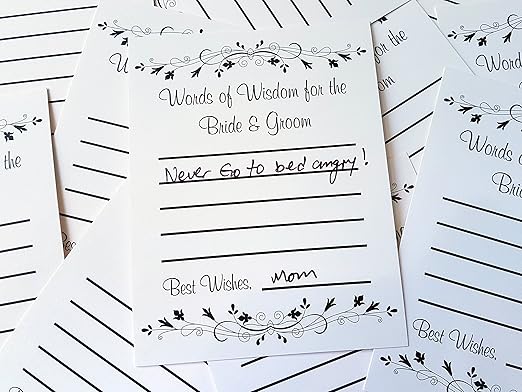 Words of Wisdom for the
Bride & Groom
Never Go to bed angry!
Best Wishes, Mom
for the
m
the
Words of
Wisdom
Bride
Best Wishes,